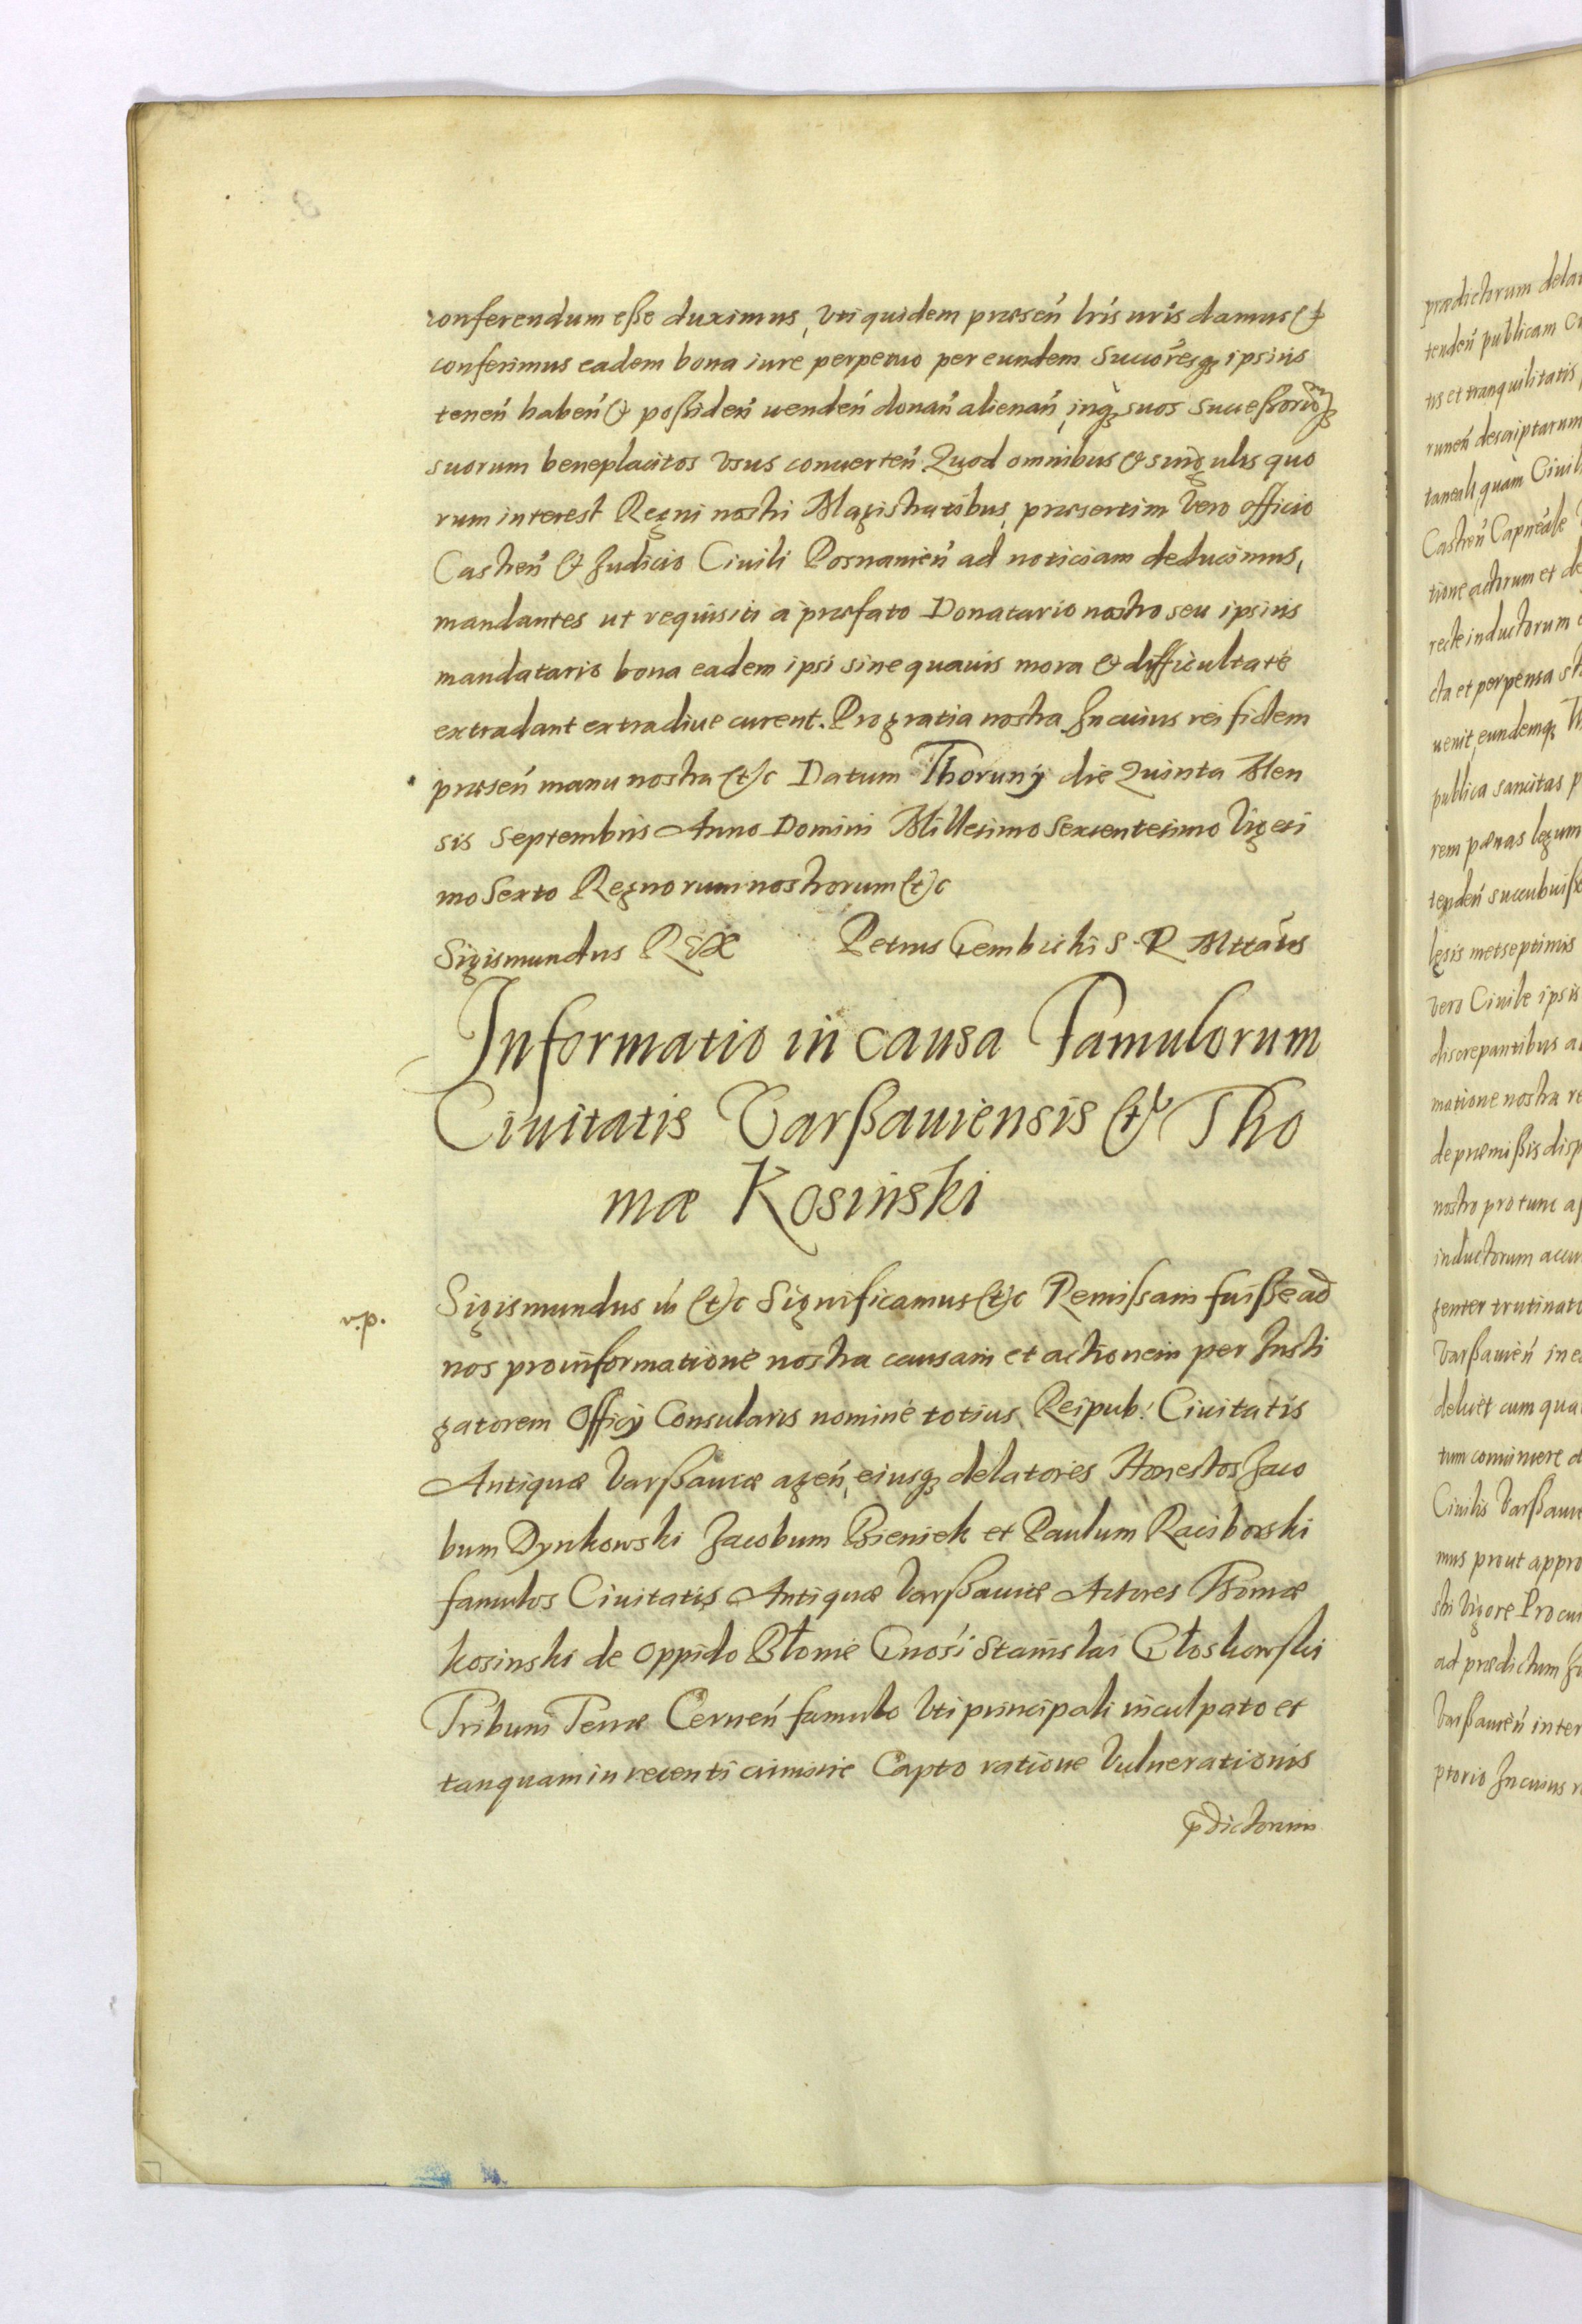 conferendum eße duximus, Vti quidem præseń lr̃is nr̃is damus et
conferimus eadem bona iure perpetuo per eundem Succo͂resq3 ipsius
teneń habeń et poßideń uendeń donań alienań, inq3 suos Successorumq3
suorum beneplacitos Vsus conuerteń Quod omnibus et singulis quo
rum interest Regni nostri Magistratibus, præsertim Vero officio
Castreń et Judicio Ciuili Posnanień ad noticiam deducimus,
mandantes ut requisiti a præfato Donatario nostro seu ipsius
mandatario bona eadem ipsi sine quauis mora et difficultate
extradant extradiue curent. Pro gratia nostra In cuius rei fidem
præseń manu nostra etc Datum Thoruny die Quinta Men
sis Septembris Anno Domini Millesimo Sexcentesimo Vigesi
mo Sexto Regnorum nostrorum etc
Sigismundus Rex Petrus Gembicki S. R. Mttãis
Informatio in causa Famulorum
Ciuitatis Varßauiensis et Tho
mæ Kosinski
v.p.
Sigismundus iii etc Significamus etc Remißam fuiße ad
nos pro informatione nostra causam et actionem per Insti
gatorem Officij Consularis nomine totius Reipub: Ciuitatis
Antiquæ Varßauiæ ageń, eiusq3 delatores Honestos Jaco
bum Dynkowski Jacobum Bieniek et Paulum Raciborski
famulos Ciuitatis Antiquæ Varßauiæ Actores Thomæ
Kosinski de Oppido Błonie Gnosi Stanislai Głoskowski
Tribuni Terræ Cerneń famulo Vti principali inculpato et
tanquam in recenti crimine Capto ratione Vulnerationis
p̃dictorum
prædictorum dela
tendeń publicam
tis et tranquilitatis
runeń descriptarum
taneali quam Ciuil
Castreń Capneale
tione actorum et de
recte inductorum
cta et perpensa
uenit, eundemq3 Th
publica sancitas p
rem pænas legum
tendeń succubuiße
læsis metseptimis
Vero Ciuile ipsis
discrepantibus a
matione nostra re
de præmißis disp
nostro pro tunc a
inductorum accu
genter trutinat
Varßauień in e
deluet cum qua
tum conuiniere
Ciuilis Varßauie
mus prout appro
stri Vigore Pro cui
ad prædictum Ju
Varßauień inter
ptorio In cuius r